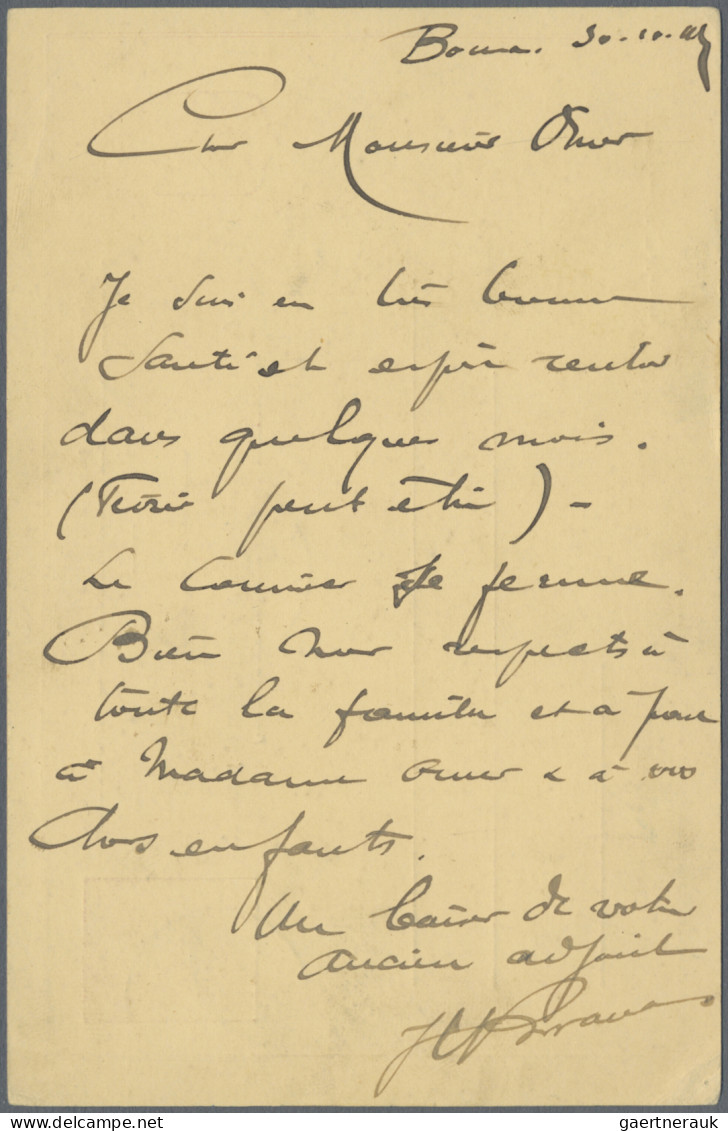 Boma. 30.10.
Cher Monsieur Omer
Je suis en très bonne
santé et espère rentrer
dans quelques mois.
( peut être) -
Le courrier se ferme.
Bien mes respects à
toute la famille et à part
à Madame Omer & à vos
chers enfants.
Un baiser de votre
ancien adjoint
Delcampe.net
gaertnerauk